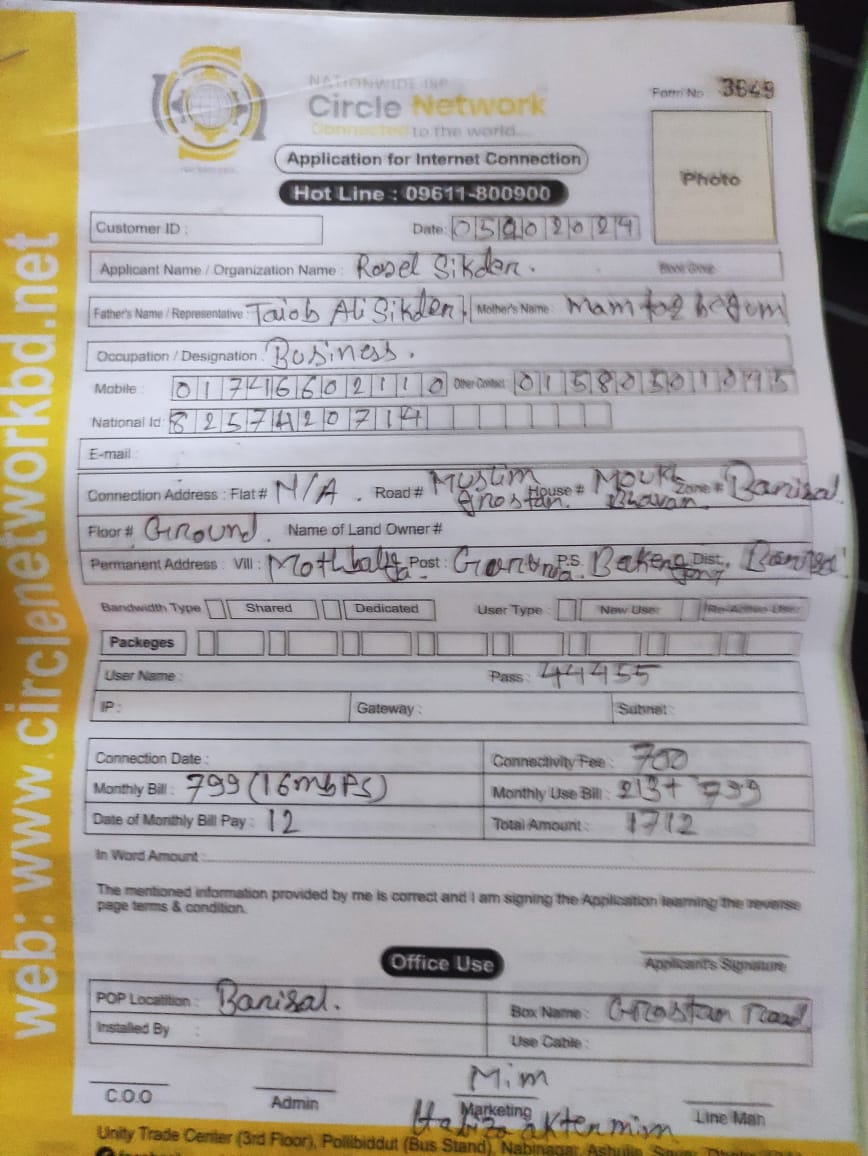 web: www.circlenetworkbd.net
NATIONWIDE ISP
Circle Network
Connected to the world...
Form No 3649
Application for Internet Connection
Hot Line : 09611-800900
Photo
Customer ID :
Date: 05 02024
Applicant Name / Organization Name : Rasel Sikder. Blood Group
Father's Name / Representative : Taiob Ali Sikder Mother's Name : Mamtag begum
Occupation / Designation : Business.
Mobile : 01746602110 Other Contact : 01580501045
National Id: 8257420714
E-mail :
Connection Address : Flat # N/A . Road # Muslim Grostan. House # Bhavan. Zone # Barisal
Floor # Ground. Name of Land Owner #
Permanent Address : Vill : Post : P.S. Dist.
Bandwidth Type Shared Dedicated User Type : New User Re-Active User
Packeges
User Name : Pass : 44455
IP : Gateway : Subnet :
Connection Date : Connectivity Fee : 700
Monthly Bill : 799 (16mbPS) Monthly Use Bill : 213+ 799
Date of Monthly Bill Pay : 12 Total Amount : 1712
In Word Amount :
The mentioned information provided by me is correct and I am signing the Application learning the reverse
page terms & condition.
Office Use
Applicant's Signature
POP Locatition : Barisal. Box Name : Grostan Road
Installed By : Use Cable :
Mim
C.O.O Admin Marketing Line Man
Habiba akter mim
Unity Trade Center (3rd Floor), Pollibiddut (Bus Stand), Nabinagar, Ashulia, Savar, Dhaka